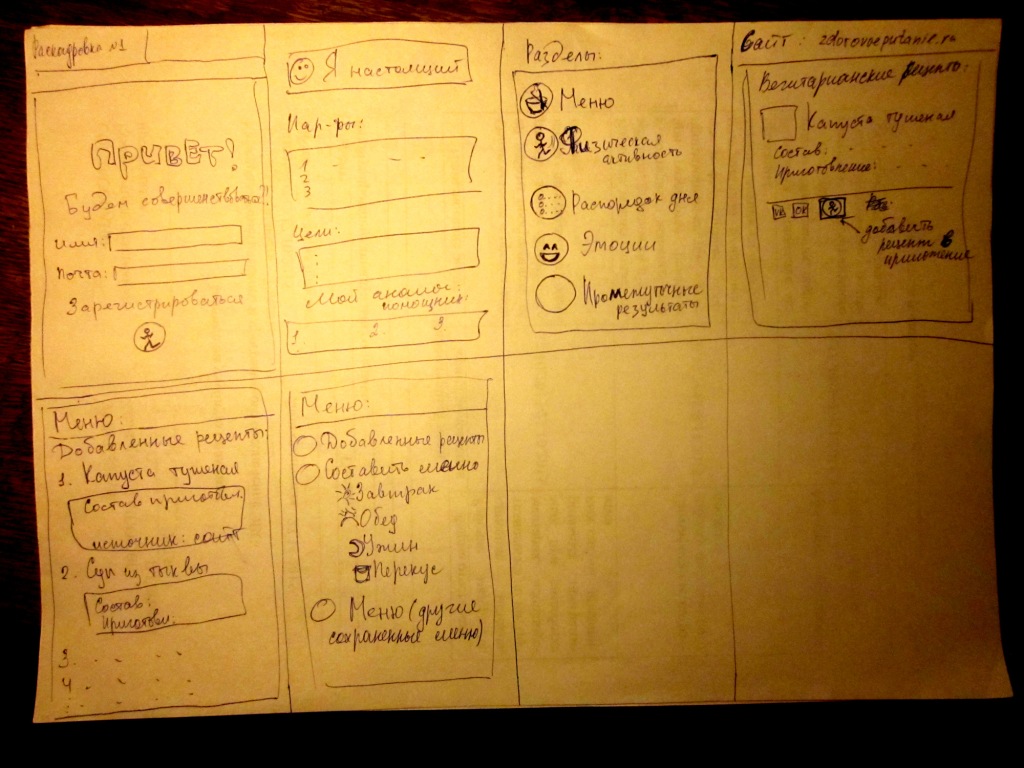 Раскадровка №1
ПРИВЕТ!
Будем совершенствоваться?!
Имя:
Почта:
Зарегистрироваться
Я настоящий
Пар-ры:
1
2
3
Цели:
Мой анализ:
помощник:
1. 2. 3.
Разделы:
Меню
Физическая
активность
Распорядок дня
Эмоции
Промежуточные
результаты
Сайт: zdorovoepitanie.ru
Вегитарианские рецепты:
Капуста тушеная
Состав:
Приготовление:
добавить
рецепт в
приложение
Меню:
Добавленные рецепты:
1. Капуста тушеная
Состав приготовл.
источник: сайт
2. Суп из тыквы
Состав:
Приготовл:
3.
4.
Меню:
Добавленные рецепты
Составить меню
Завтрак
Обед
Ужин
Перекус
Меню (другие
сохраненные меню)